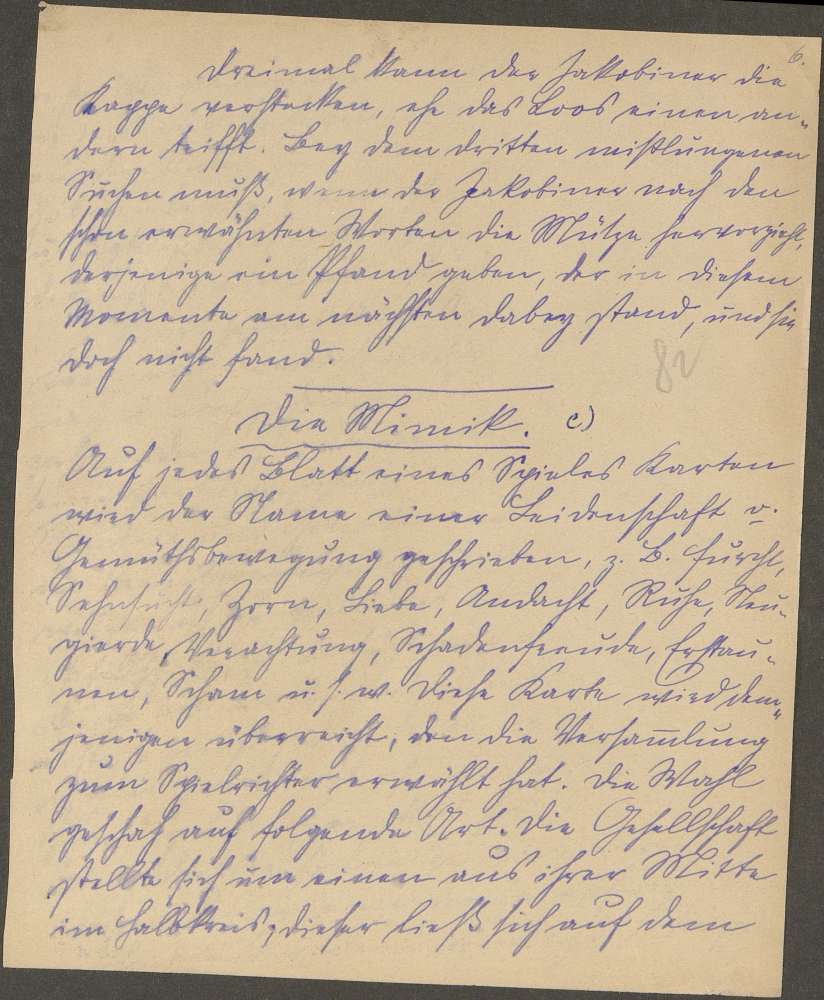 6.
Dreimal kann der Jakobiner die
Kappe verstecken, ehe das Loos einen an-
dern trifft. Bey dem dritten mißlungenen
Suchen muß, wenn der Jakobiner nach den
schon erwähnten Worten die Mütze hervorzieht,
derjenige ein Pfand geben, der in diesem
Momente am nächsten dabey stand, und sie
doch nicht fand.
82
Die Mimik. c)
Auf jedes Blatt eines Spieles Karten
wird der Name einer Leidenschaft o.
Gemüthsbewegung geschrieben, z. B. Furcht,
Sehnsucht, Zorn, Liebe, Andacht, Ruhe, Neu-
gierde, Verachtung, Schadenfreude, Erstau-
nen, Scham u. s. w. Diese Karte wird dem-
jenigen überreicht, den die Versam̅lung
zum Spielrichter erwählt hat. Die Wahl
geschah auf folgende Art. Die Gesellschaft
stellte sich um einen aus ihrer Mitte
im Halbkreis; dieser ließ sich auf dem